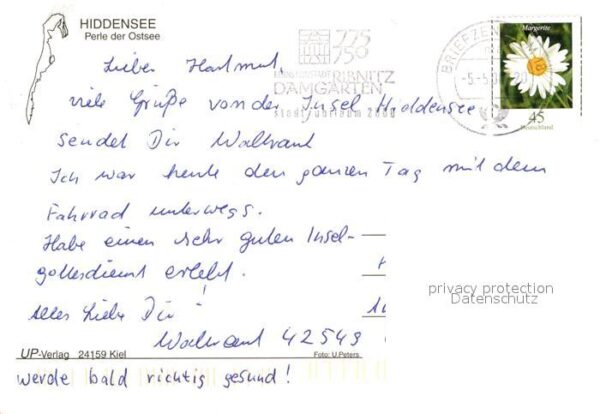 HIDDENSEE
Perle der Ostsee
775
750
RIBNITZ
DAMGARTEN
BRIEFZEN
-5.-5.
Margerite
45
Deutschland
Lieber Hartmut,
viele Grüße von der Insel Hiddensee
sendet Dir Waltraut
Ich war heute den ganzen Tag mit dem
Fahrrad unterwegs.
Habe einen sehr guten Insel-
gottesdienst erlebt.
Alles Liebe Dir!
Waltraut 42549
privacy protection
Datenschutz
UP-Verlag 24159 Kiel
Foto: U.Peters
werde bald richtig gesund!